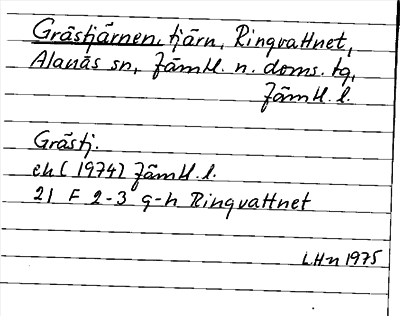 Gråstjärnen, tjärn, Ringvattnet,
Alanäs sn, Jämtl. n. doms. tg,
Jämtl. l.
Gråstj.
ek (1974) Jämtl. l.
21 F 2-3 g-h Ringvattnet
LHn 1975